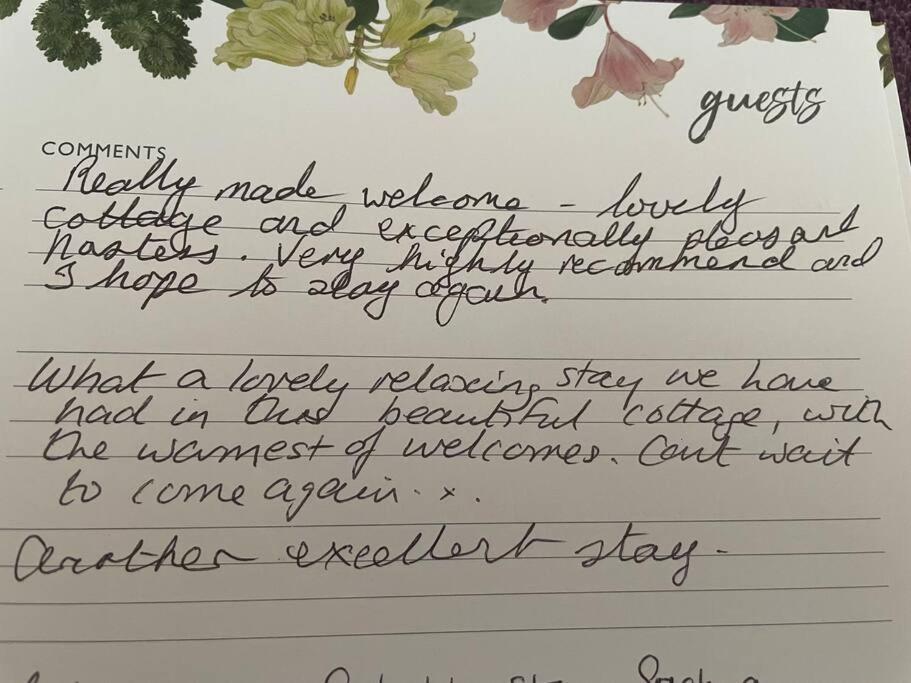 guests
COMMENTS
Really made welcome - lovely
cottage and exceptionally pleasant
hostess. Very highly recommend and
I hope to stay again.
What a lovely relaxing stay we have
had in this beautiful cottage, with
the warmest of welcomes. Cant wait
to come again. x.
Another excellent stay -